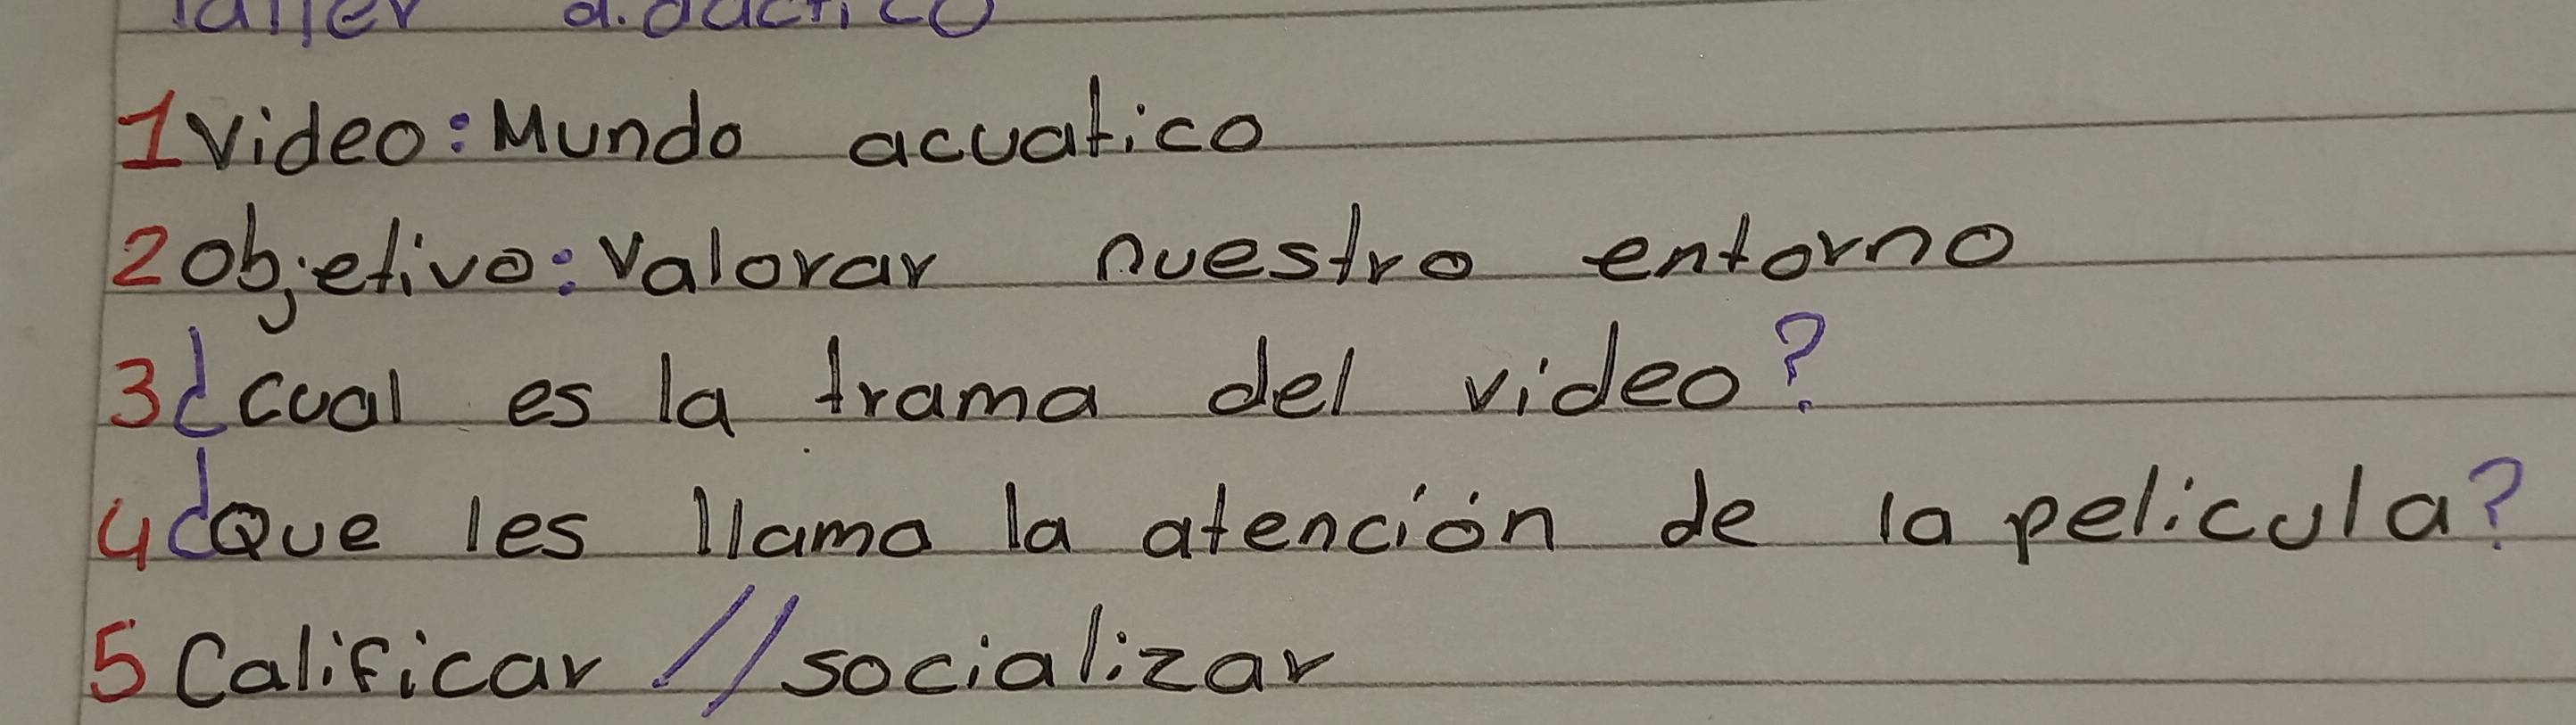 Taller didactico
1 Video: Mundo acuatico
2 Objetivo: Valorar nuestro entorno
3 ¿cual es la trama del video?
4 ¿Que les llama la atención de la pelicula?
5 Calificar // socializar